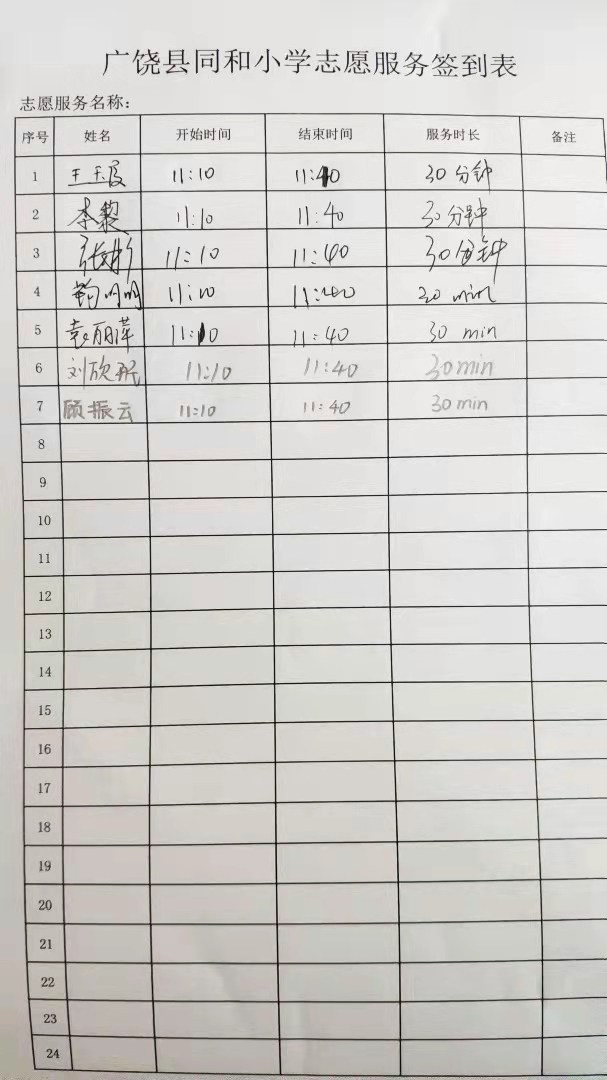 广饶县同和小学志愿服务签到表
志愿服务名称:
序号 姓名 开始时间 结束时间 服务时长 备注
1 王玉霞 11:10 11:40 30分钟
2 李黎 11:10 11:40 30分钟
3 张彬 11:10 11:40 30分钟
4 明明 11:10 11:40 30 min
5 袁丽萍 11:10 11:40 30 min
6 刘欣 11:10 11:40 30min
7 顾振云 11:10 11:40 30min
8
9
10
11
12
13
14
15
16
17
18
19
20
21
22
23
24